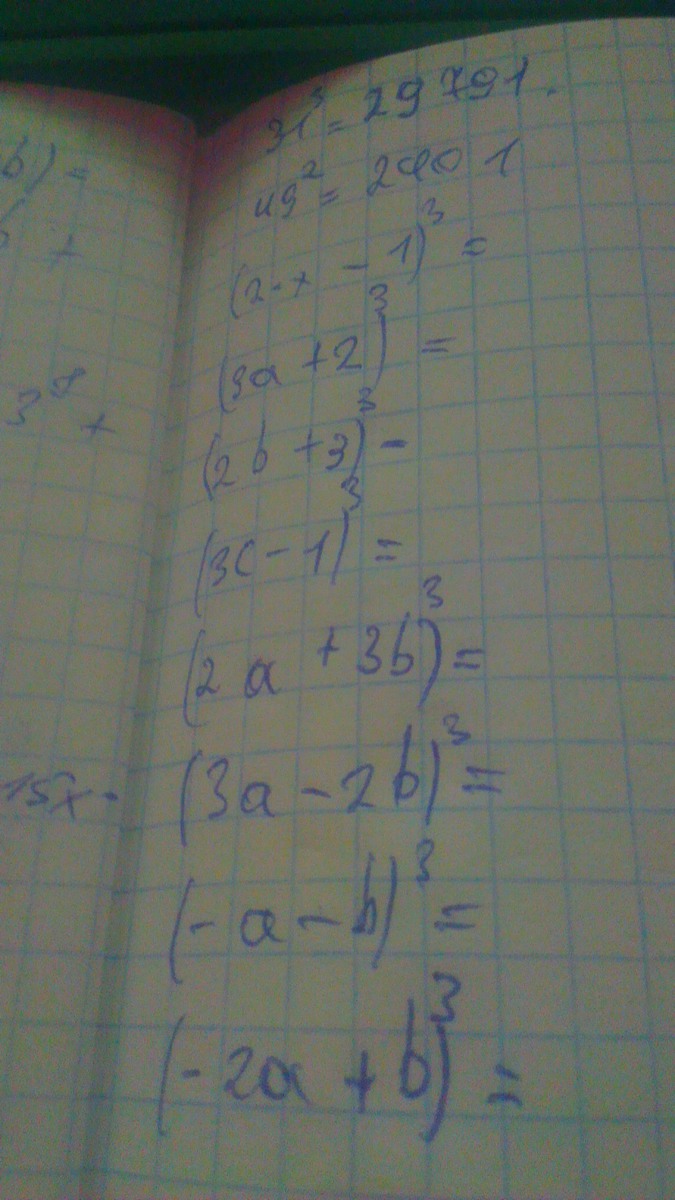 b) =
b +
3⁸ +
15x -
31³ = 29791.
49² = 2401
(2·x - 1)³ =
(3a + 2)³ =
(2b + 3)³ =
(3c - 1)³ =
(2a + 3b)³ =
(3a - 2b)³ =
(-a - b)³ =
(-2a + b)³ =